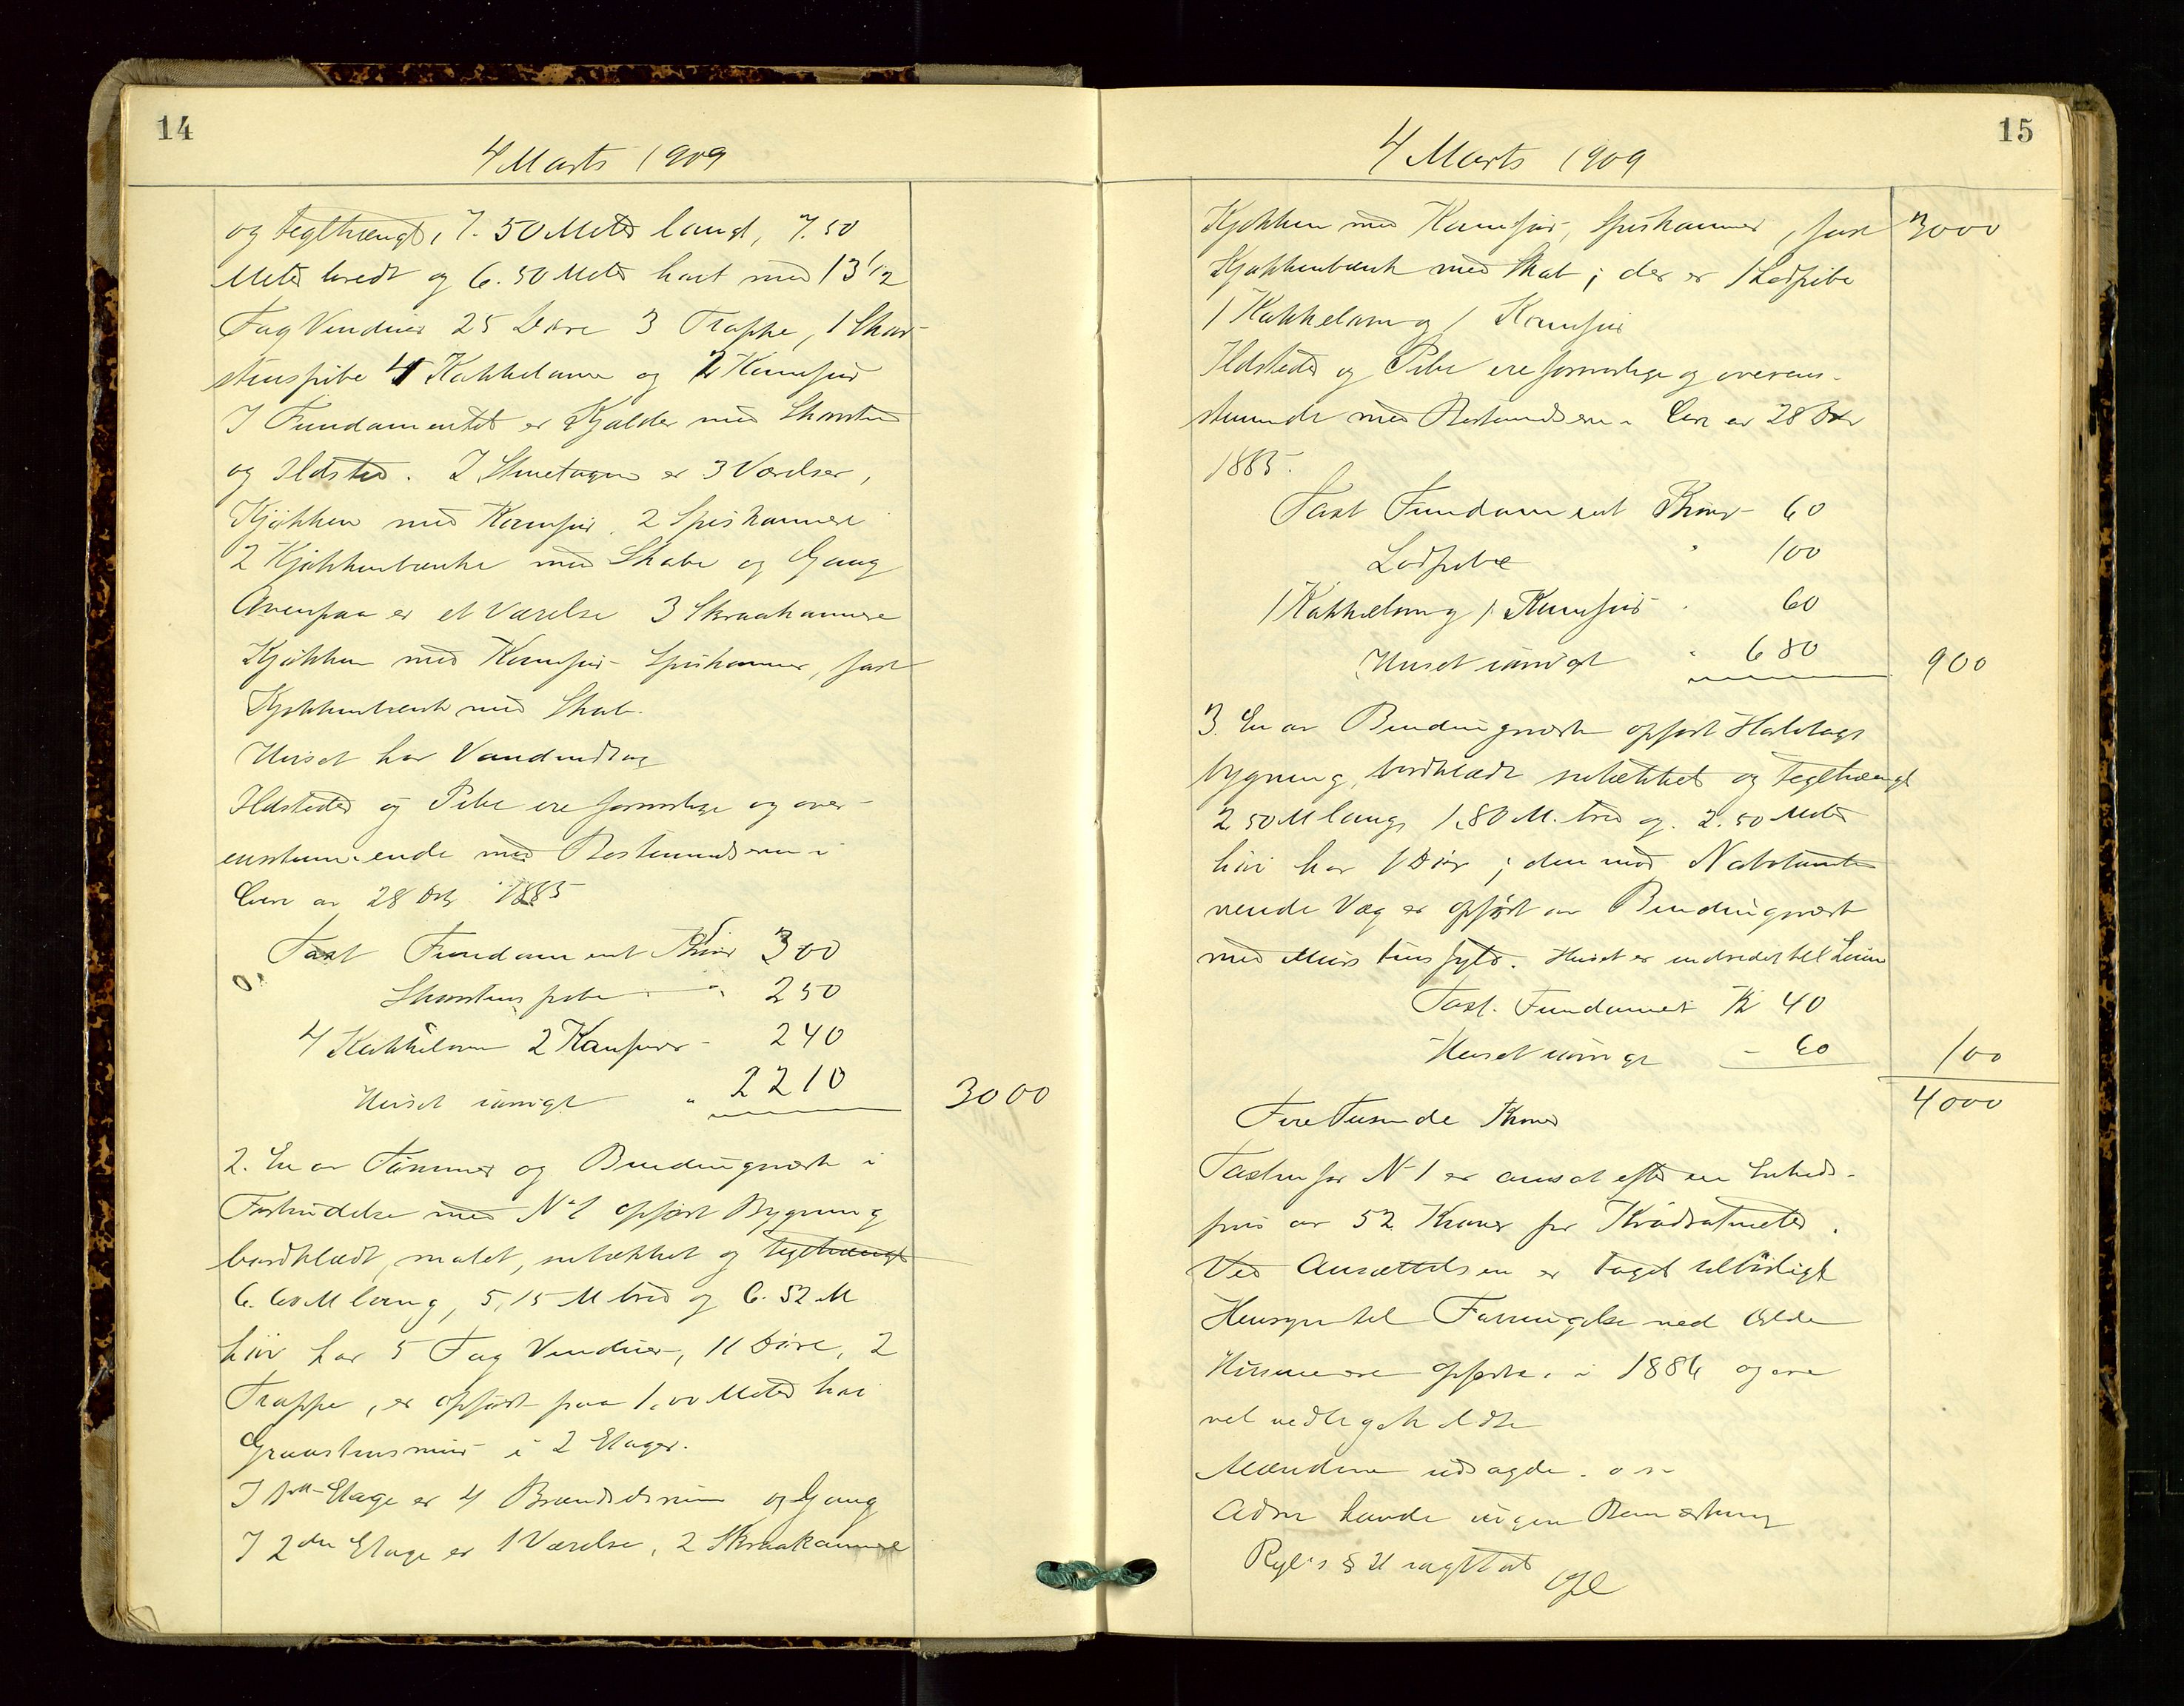 14
4 Marts 1909
og teglhængt, 7.50 Meter langt, 7.50
Meter bredt og 6.50 Meter høit med 13 1/2
Fag Vinduer 25 Døre 3 Trappe, 1 Skor-
stenspibe 4 Kakkelovne og 2 Komfur
I Fundamentet er Kjælder med Skorsten
og Ildsted. I Stueetagen er 3 Værelser,
Kjøkken med Komfur, 2 Spiskammere
2 Kjøkkenbænke med Skabe og Gang
Ovenpaa er et Værelse 3 Skraakamre
Kjøkken med Komfur Spiskammer, fast
Kjøkkenbænk med Skab.
Huset har Vandindlæg
Ildsteder og Pibe ere forsvarlige og over-
ensstemmende med Bestemmelserne i
Loven av 28 Oktr 1885
Taxt Fundament Kroner 300
Skorstenspibe " 250
4 Kakkelovne 2 Komfurer - 240
Huset iøvrigt " 2210
3000
2. En av Tømmer og Bindingsverk i
Forbindelse med No 1 opført Bygning
bordklædt, malet, sutækket og teglhængt
6.60 M lang, 5,15 M bred og 6.52 M
høi har 5 Fag Vinduer, 11 Døre, 2
Trappe, er opført paa 1,00 Meter høi
Graastensmur i 2 Etager.
I 1ste Etage er 4 Brændselsrum og Gang
I 2den Etage er 1 Værelse, 2 Skraakamre
15
4 Marts 1909
Kjøkken med Komfur, Spiskammer, fast 3000
Kjøkkenbænk med Skab; der er 1 Lodpibe
1 Kakkelovn og 1 Komfur
Ildsteder og Pibe ere forsvarlige og overens-
stemmende med Bestemmelserne i Lov av 28 Oktr
1885.
Taxt Fundament Kroner 60
Lodpibe " 100
1 Kakkelovn og 1 Komfur " 60
Huset iøvrigt " 680
900
3. En av Bindingsverk opført Halvtags
bygning, bordklædt sutækket og teglhængt
2.50 M lang, 1,80 M. bred og 2.50 Meter
høi har 1 Dør; den mod Nabotomten
vende Væg er opført av Bindingsverk
med Murstensfyld. Huset er indredet til
Taxt. Fundament Kr 40
Huset iøvrigt - 60
100
4000
Fire Tusinde Kroner
Taxten for No 1 er ansat efter en Enheds-
pris av 52 Kroner per Kvadratmeter.
Ved Ansættelsen er taget tilbørligt
Hensyn til Forringelse ved Ælde
Husene ere opførte i 1886 og ere
vel vedligeholdte
Mændene udsagde. o s v
havde ingen Bemærkning
Rgl's § 21 iagttat